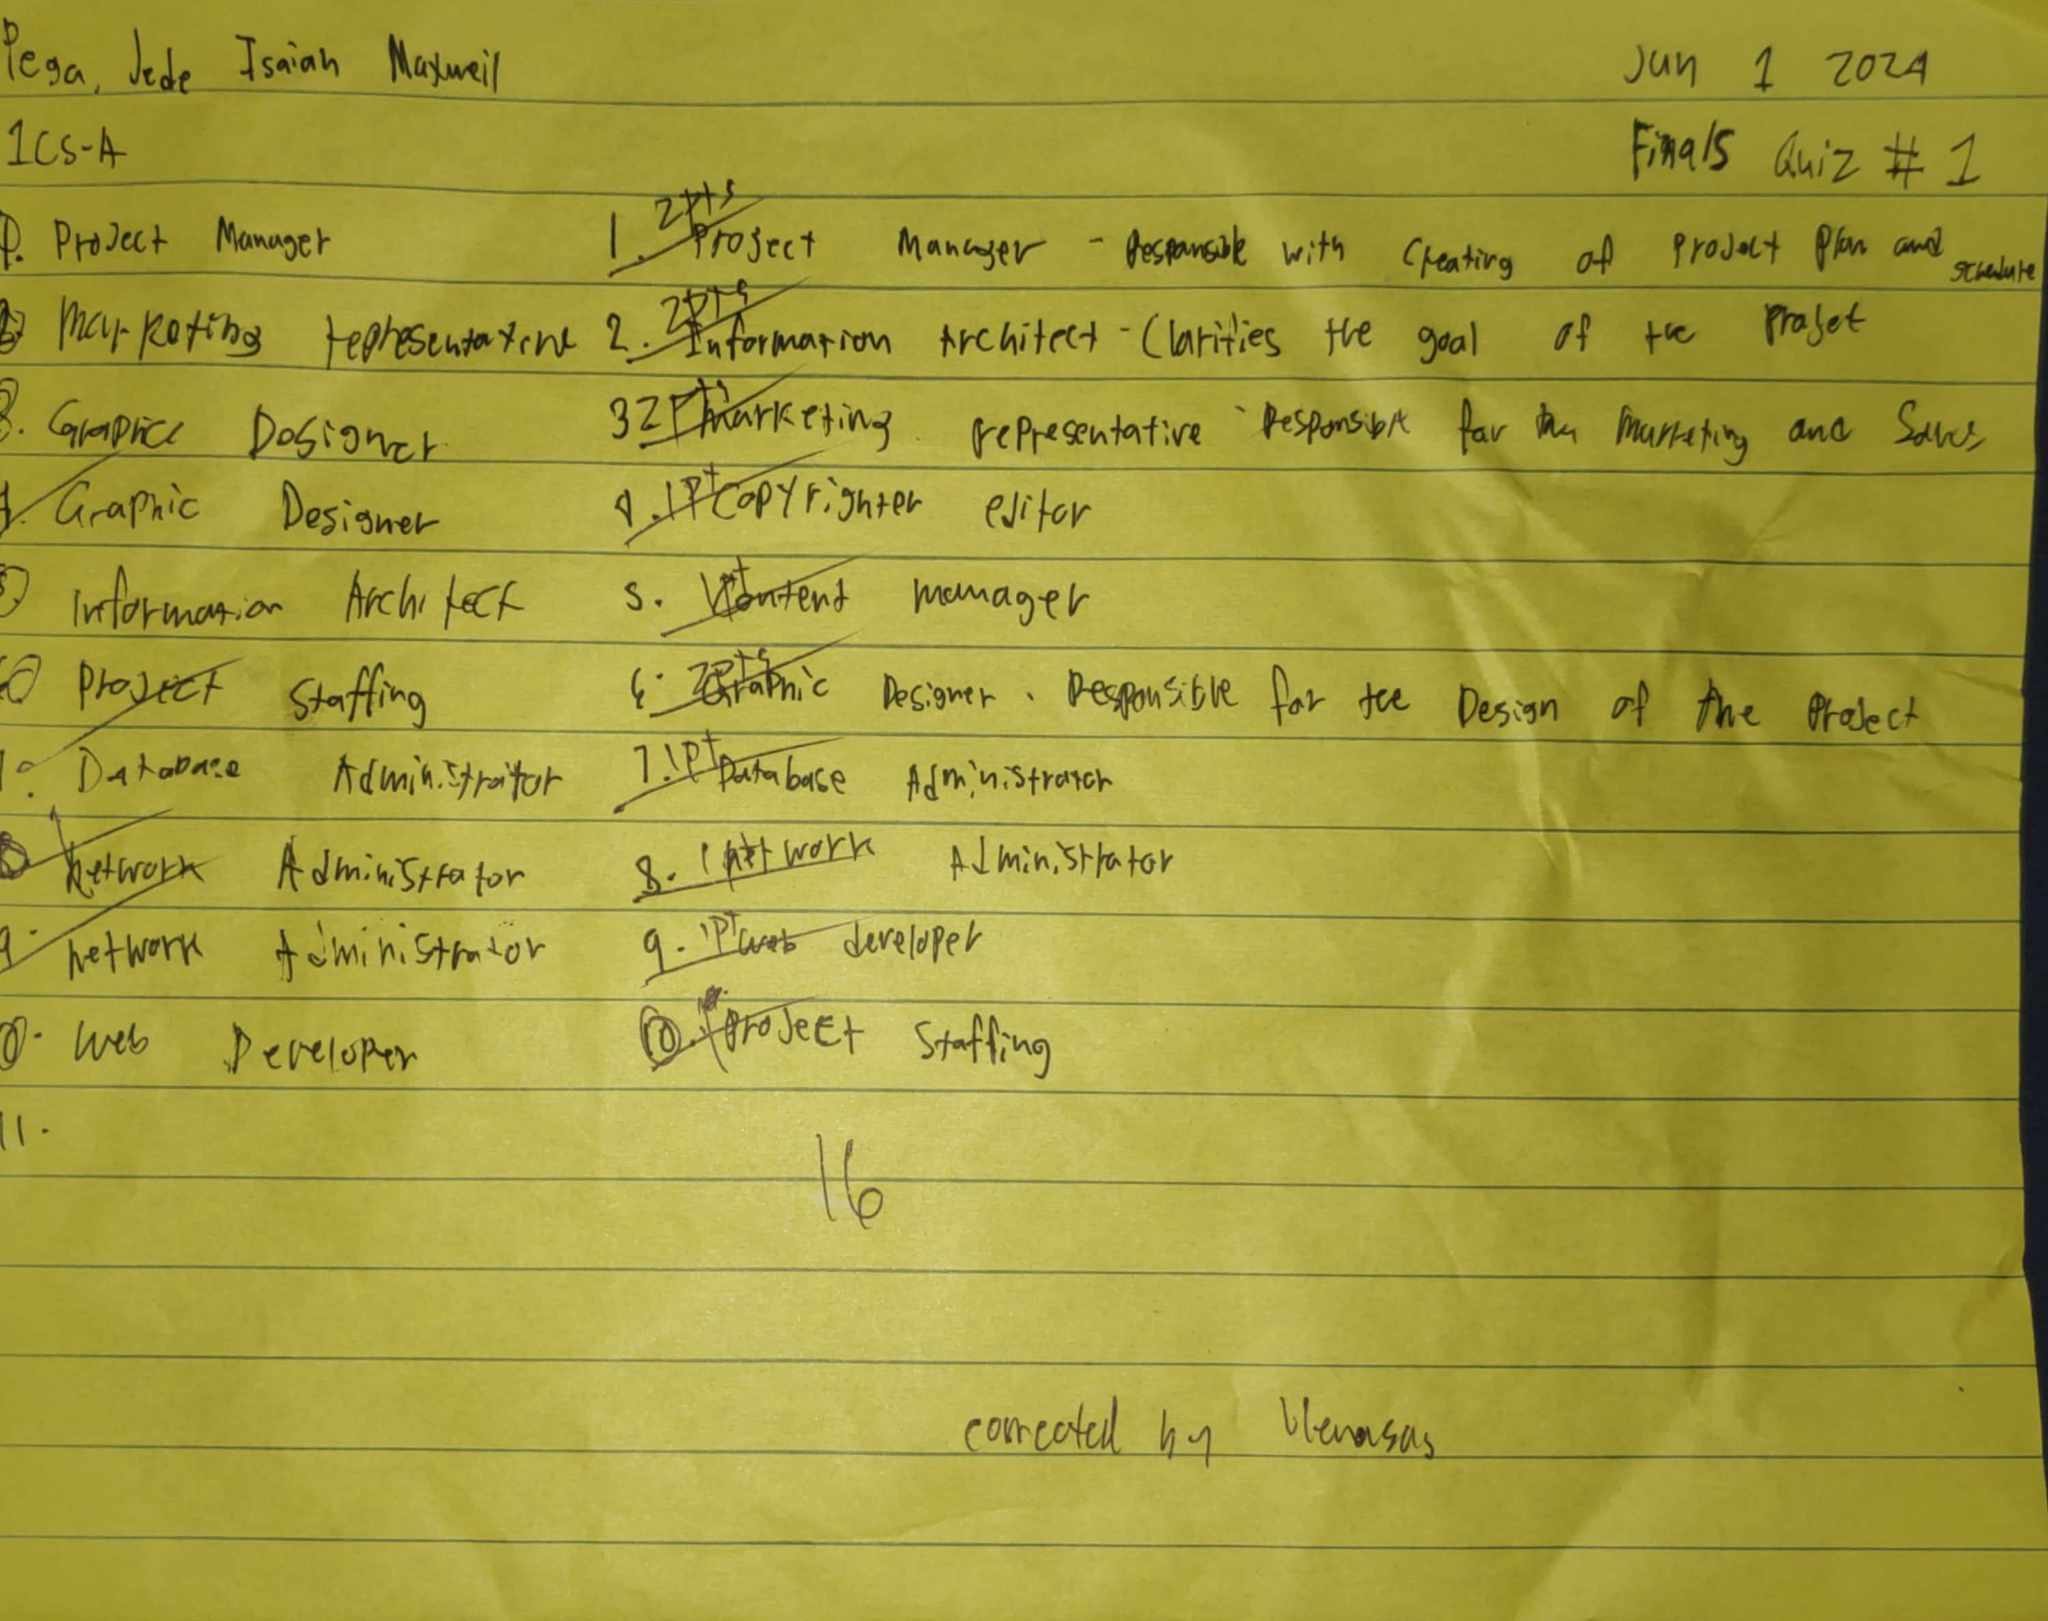 Pega, Jede Isaiah Maxweil
Jun 1 2024
1CS-A
Finals Quiz # 1
1. Project Manager
Marketing representative
3. Graphice Dosigner
4. Graphic Designer
5. Information Architect
Project Staffing
Database Administraitor
8. network Administrator
9. network Administrator
10. Web Developer
11.
1. 2pts Project Manager - Responsible with Creating of Project Plan and schedule
2. 2pts Information Architect - Clarifies the goal of the Projet
3 2pts marketing representative - Responsible for the Marketing and Sales
4. 1pt Copyrighter editor
5. 1pt Content manager
6. 2pts Graphic Designer . Responsible for the Design of the Project
7. 1pt Database Administrator
8. 1 network Administrator
9. 1pt web developer
10. Project Staffing
16
corrected by